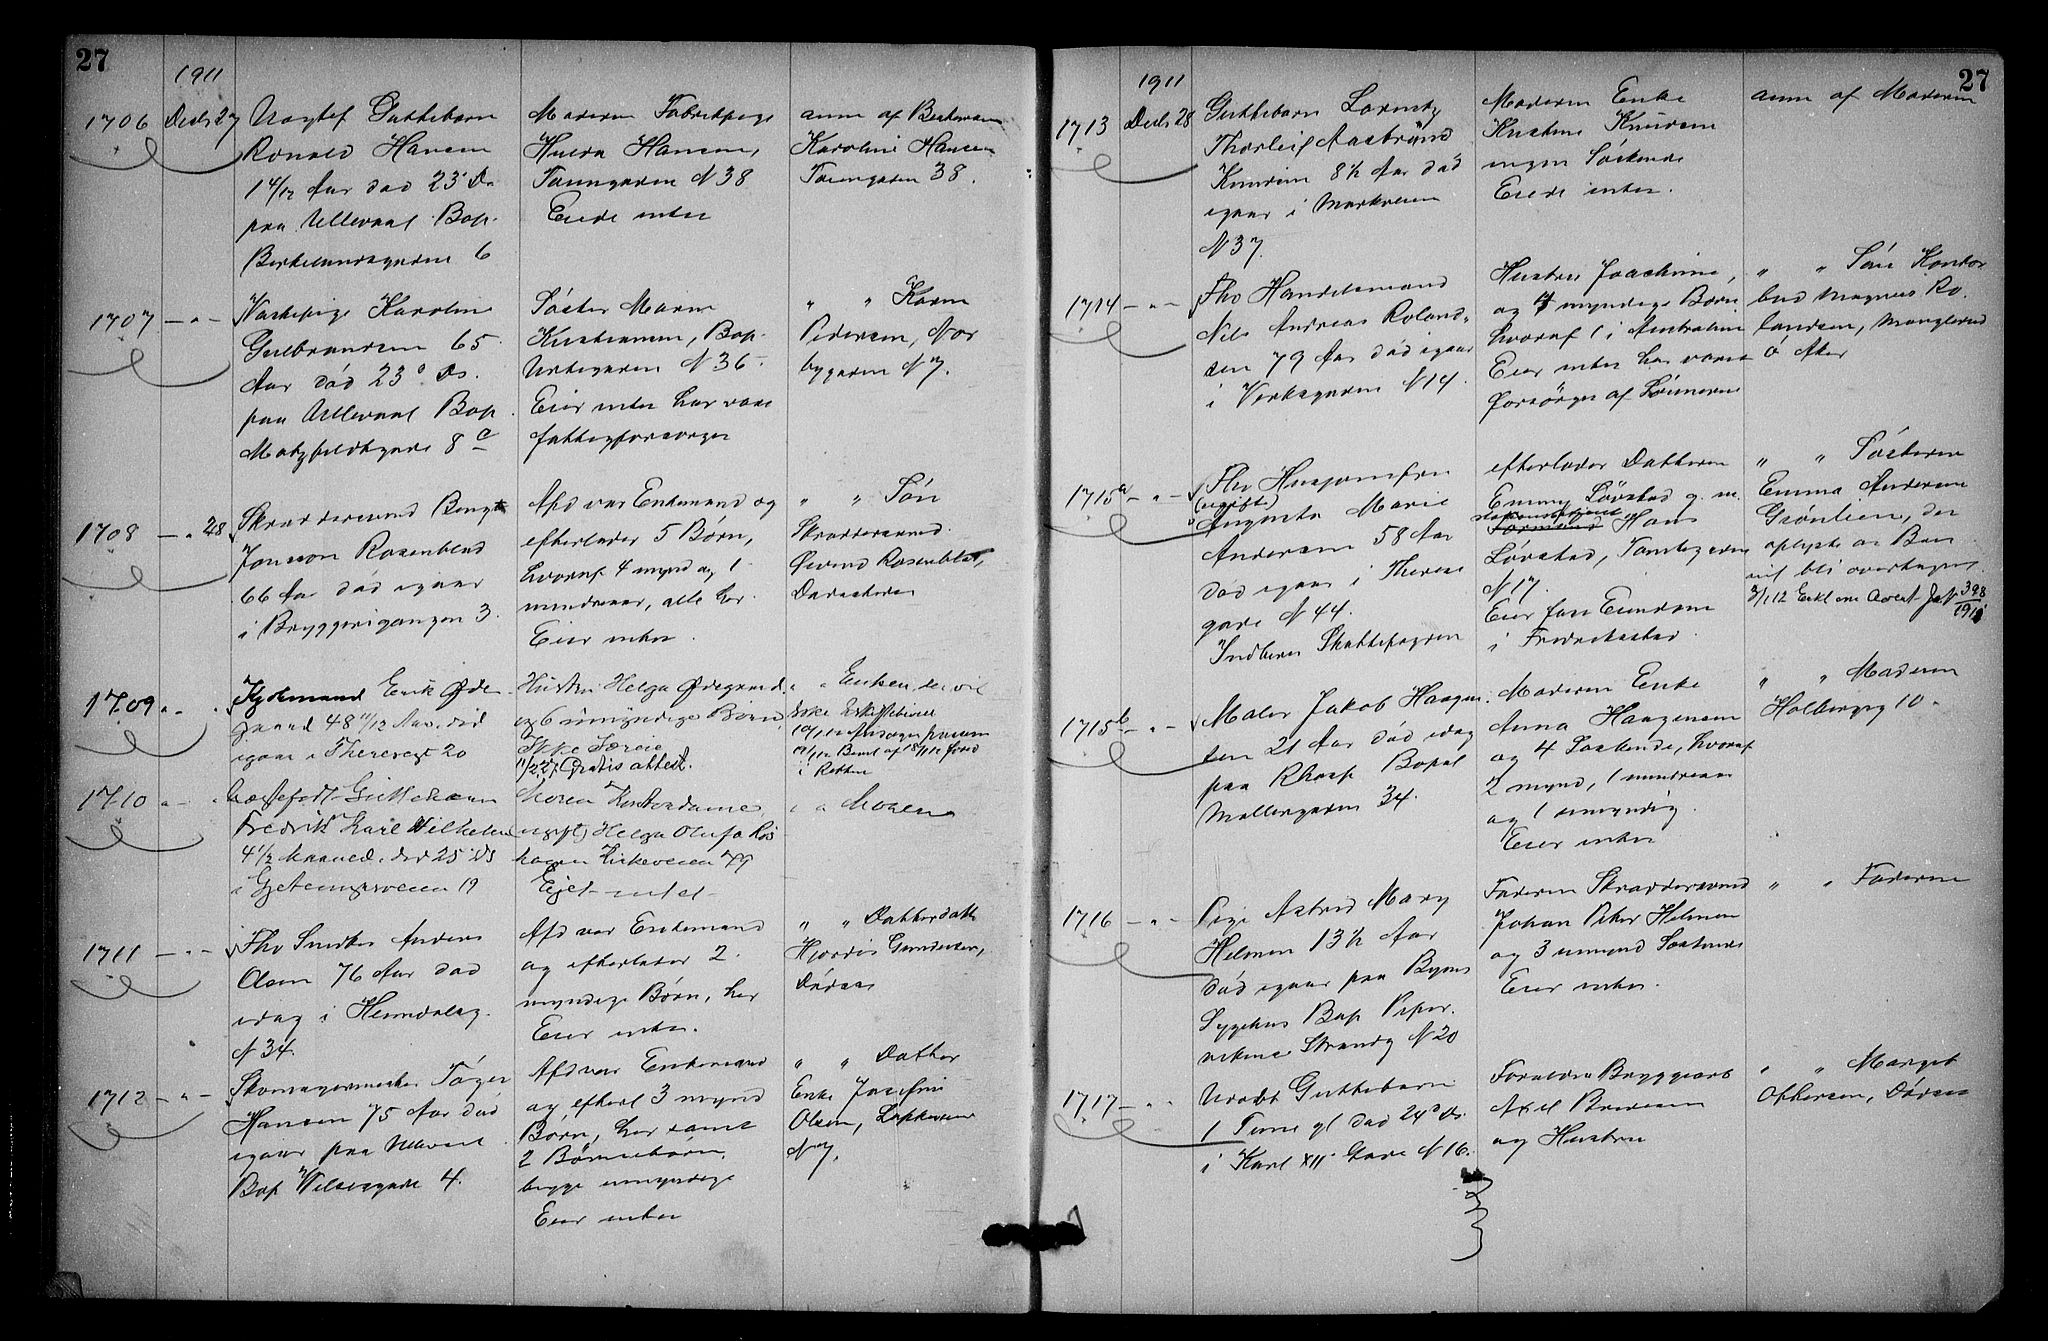 27
1911
1706 Decbr 27
Uægtef Guttebarn
Ronald Hansen
1 4/12 Aar død 23 Ds
paa Ullevaal Bop.
Birkelundsgaden 6
Moderen Fabrikpige
Hulda Hansen,
Taarngaden N 38
Eiede intet
anm af Bestemoren
Karoline Hansen
Taarngaden 38.
1707 — " —
Vaskepige Karoline
Gulbrandsen 65
Aar død 23d Ds.
paa Ullevaal Bop
8 c
Søster Marie
Kristiansen, Bop
Urtegaden N 36
Eier intet har været
fattigforsørget
" " Karen
Pedersen, Nor
bygaden N 7.
1708 — " 28
Skræddersvend Bengt
Jonsson Rosenblad
66 Aar død igaar
i Bryggerigangen 3.
Afd var Enkemand og
efterlader 5 Børn,
hvoraf 4 mynd og 1
mindreaar, alle her
Eier intet.
" " Søn
Skræddersvend
Øivind Rosenblad,
Dødsstedet
1709 " - "
Kjøbmand Erik Øde
gaard 48 11/12 Aar, død
igaar i Theresesgt 20
Hustru Helga Ødegaard
og 6 umyndige Børn
Ikke Særeie
11/2 27. Gratis attest.
" " Enken, der vil
i Retten
1710 " - "
Uægtefødt Guttebarn
Fredrik Karl Vilhelm
4 1/2 Maaned, død 25 ds
i Gjetemyrsveien 19
Moren Kontordame
ugift, Helga Olufa Ros
hagen Kirkeveien 79
Ejet intet
" " Moren
1711 — " —
Fhv Snedker Anders
Olsen 76 Aar død
idag i Heimdalsg.
N 34.
Afd var Enkemand
og efterlader 2
myndige Børn, her
Eier intet.
" " Datterdatter
Hjørdis Gundersen,
Dødsst
1712 — " —
Skomagermester Tøger
Hansen 75 Aar død
igaar paa Ullevaal
Bop Nilsesgade 4.
Afd var Enkemand
og efterl 3 mynd
Børn, her samt
2 Børnebørn,
begge umyndige
Eier intet
" " Datter
Enke Josefine
Olsen,
N 7.
27
1911
1713 Decbr 28
Guttebarn
Thorleif
Knudsen 8 1/2 Aar død
igaar i Markveien
N 37.
Moderen Enke
Kristine Knudsen
ingen Søskende
Eiede intet.
anm af Moderen
1714 — " —
Fhv Handelsmand
Nils Andreas Roland-
sen 79 Aar død igaar
i Verksgaden N 14.
Hustru Joachime,
og 4 myndige Børn
hvoraf 1 i Australien
Eier intet har været
forsørget af Sønnerne
" " Søn Kontor
bud Magnus Ro
landsen, Manglerud
Ø Aker
1715a — " —
Fhv Husjomfru
(ugift)
Augusta Marie
Andersen 58 Aar
død igaar i Therese
gade N 44.
Indberet Skattefogden
efterlader Datteren
Emmy Løvstad g. m.
Hans
Løvstad, Tomtegaden
N 17.
Eier fast Eiendom
i Fredrikstad.
" " Søsteren
Emma Andersen
Grønlien, der
oplyste at Boet
vil bli overtaget
1715b — " —
Maler Jakob Haagen
sen 21 Aar død idag
paa Rhosp Bopæl
Møllergaden 34.
Moderen Enke
Anna Haagensen
og 4 Søskende, hvoraf
2 mynd, 1 mindreaar
og 1 umyndig.
Eier intet
" " Moderen
Holbergsg 10.
1716 — " —
Pige Astrid Mary
Helmen 13 1/2 Aar
død igaar paa Byens
Sygehus Bop Piper
vikens Strandg N 20
Faderen Skræddersvend
Johan Peter Helmen
og 3 umynd Søskende
Eier intet.
" " Faderen
1717 — " —
Udøbt Guttebarn
1 Time gl død 24d Ds.
i Karl XII Gade N 16.
Forældre Bryggeriarb
Axel Bredesen
og Hustru
" " Margit
Ottersen, Dødsst